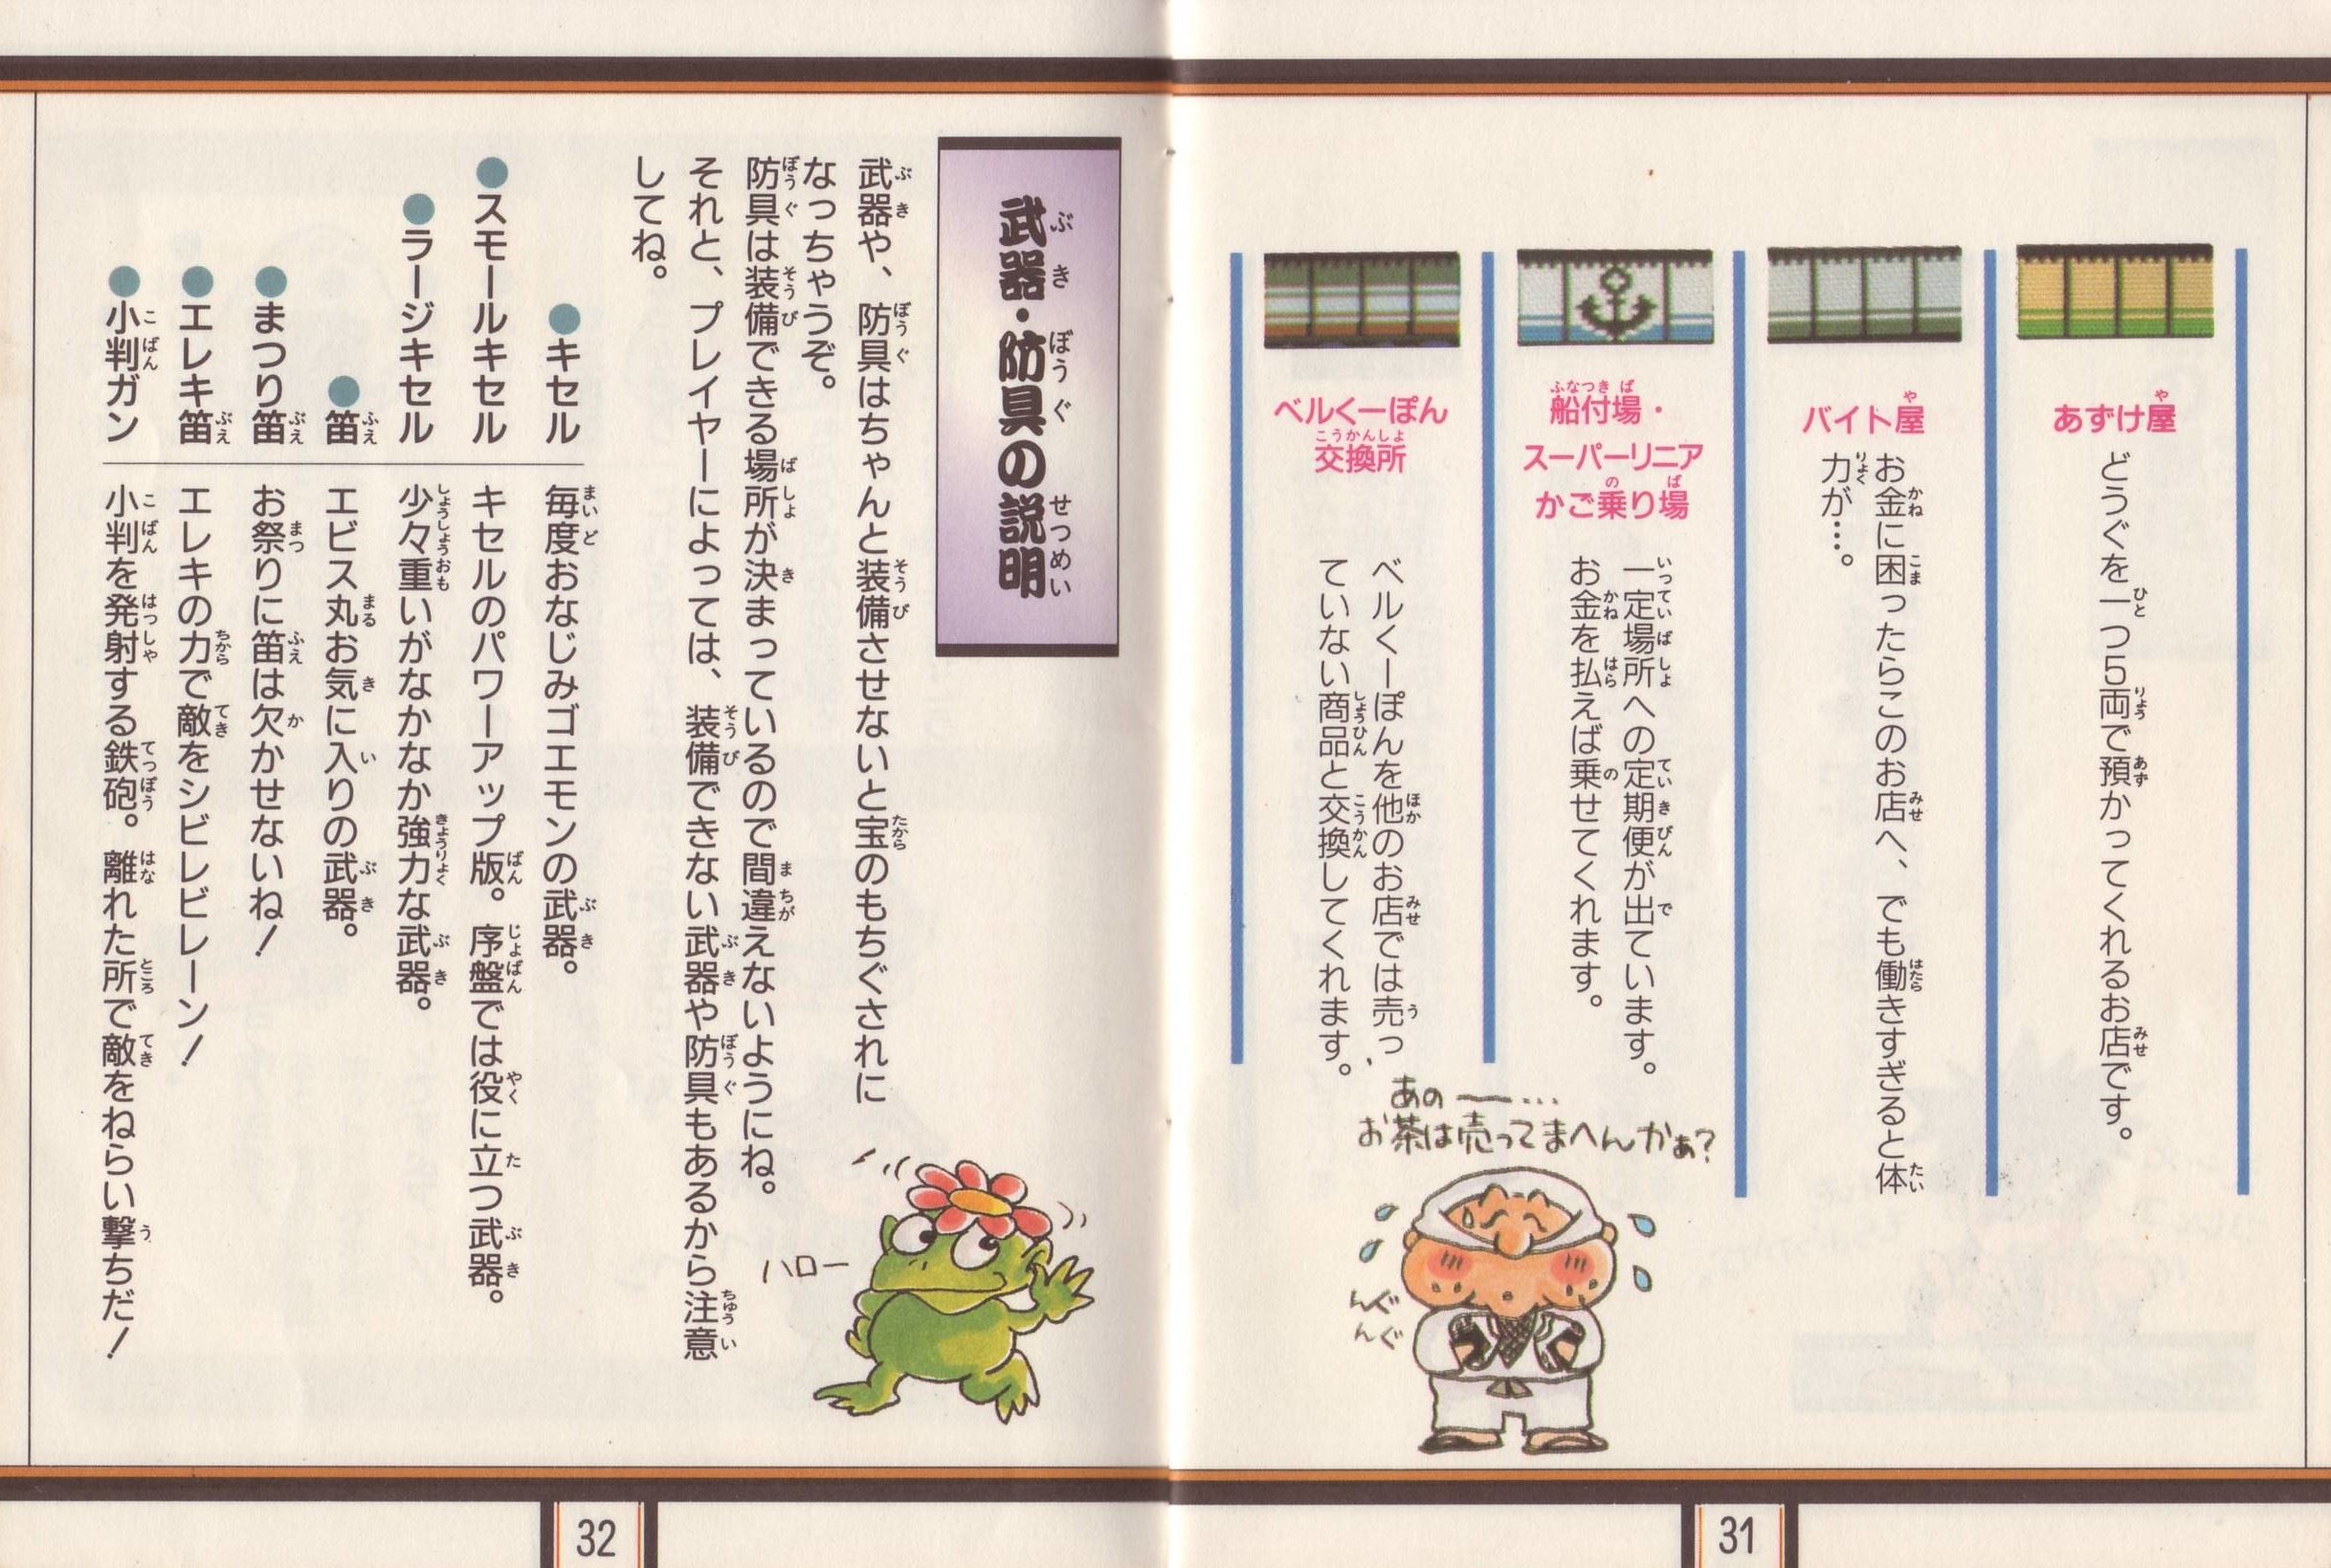 あずけ屋
どうぐを一つ5両で預かってくれるお店です。
バイト屋
お金に困ったらこのお店へ、でも働きすぎると体
力が…。
船付場・
スーパーリニア
かご乗り場
一定場所への定期便が出ています。
お金を払えば乗せてくれます。
ベルくーぽん
交換所
ベルくーぽんを他のお店では売っ
ていない商品と交換してくれます。
あのー…
お茶は売ってまへんかぁ?
んぐ
んぐ
31
武器・防具の説明
武器や、防具はちゃんと装備させないと宝のもちぐされに
なっちゃうぞ。
防具は装備できる場所が決まっているので間違えないようにね。
それと、プレイヤーによっては、装備できない武器や防具もあるから注意
してね。
ハロー
●キセル 毎度おなじみゴエモンの武器。
●スモールキセル キセルのパワーアップ版。序盤では役に立つ武器。
●ラージキセル 少々重いがなかなか強力な武器。
●笛 エビス丸お気に入りの武器。
●まつり笛 お祭りに笛は欠かせないね!
●エレキ笛 エレキの力で敵をシビレビレーン!
●小判ガン 小判を発射する鉄砲。離れた所で敵をねらい撃ちだ!
32